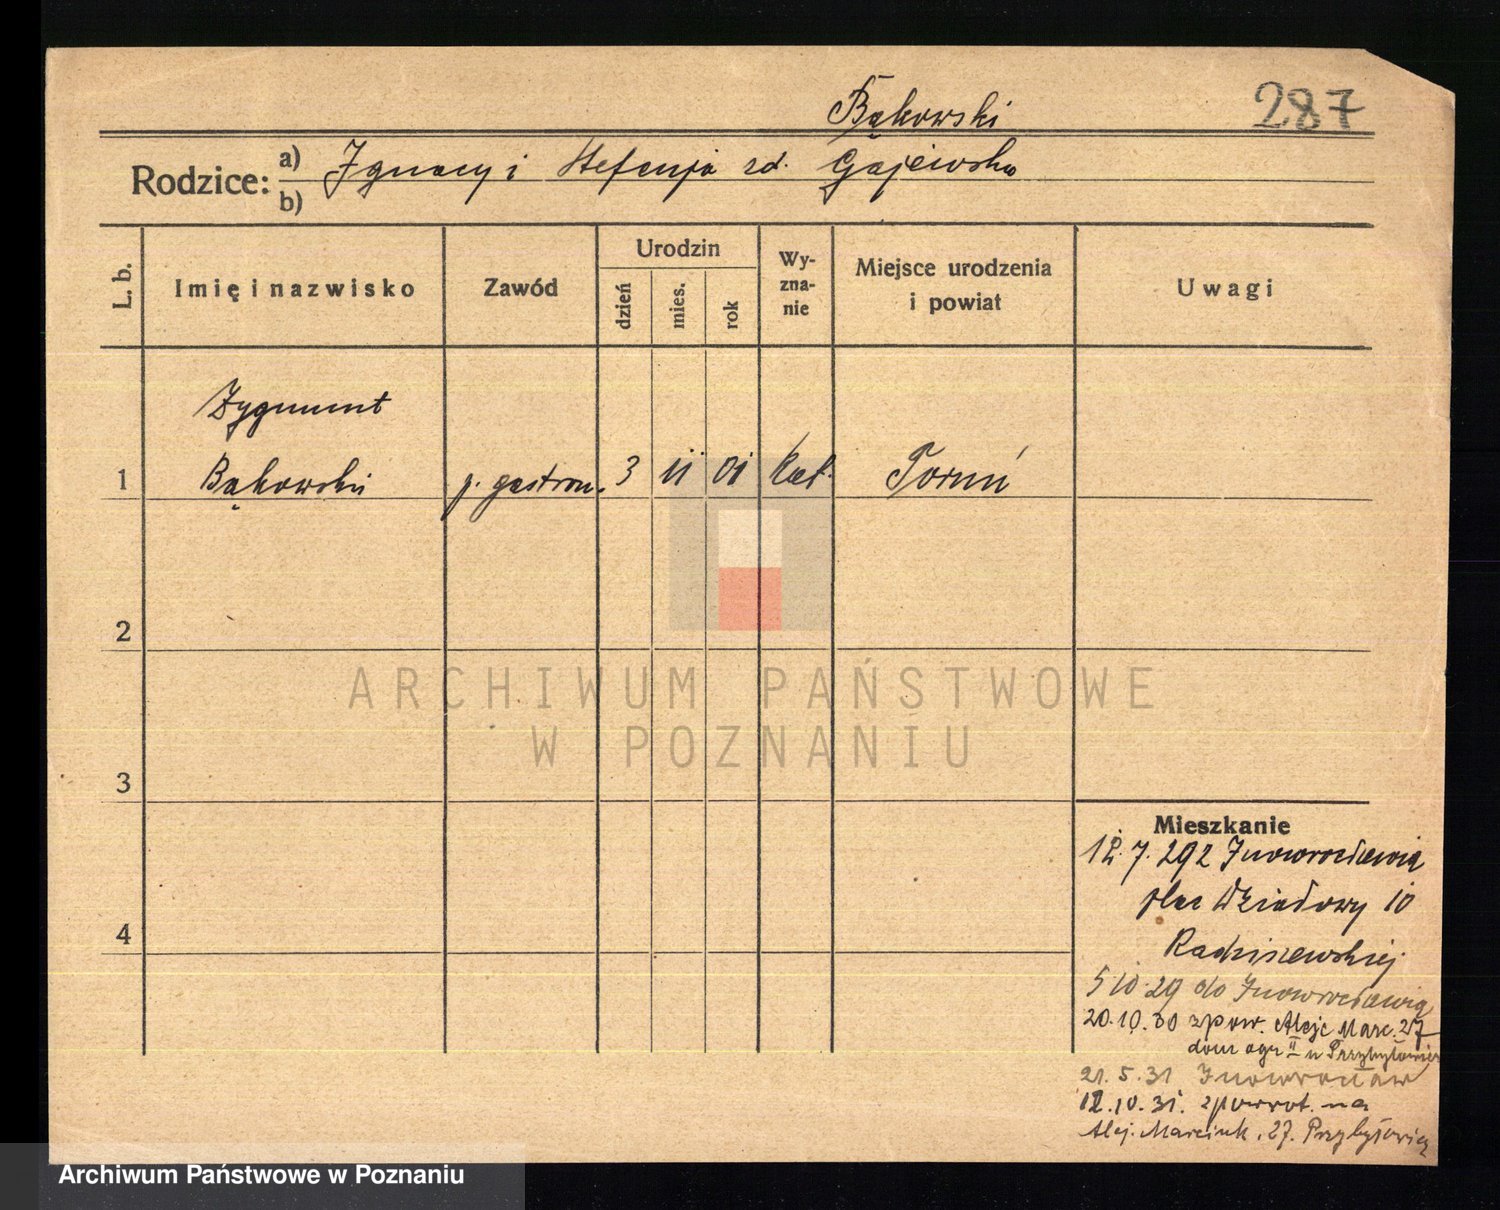 Bąkowski
287
Rodzice: a) Ignacy i Stefanja zd. Gajewska
b)
L. b. Imię i nazwisko Zawód Urodzin dzień mies. rok Wyznanie Miejsce urodzenia i powiat Uwagi
Zygmunt
1 Bąkowski p. gastron. 3 11 01 kat. Toruń
2
3
4
Mieszkanie
12.7.292 Inowrocławia
plac Działowy 10
Radziszewskiej
5 10 29 do Inowrocławia
20.10.30 zpow. Aleje Marc. 27
dom ogr II u Przybyłowicz
21.5.31 Inowrocław
12.10.31. zpowrot. na
Alej. Marcink. 27. Przybyłowicz
ARCHIWUM PAŃSTWOWE
W POZNANIU
Archiwum Państwowe w Poznaniu